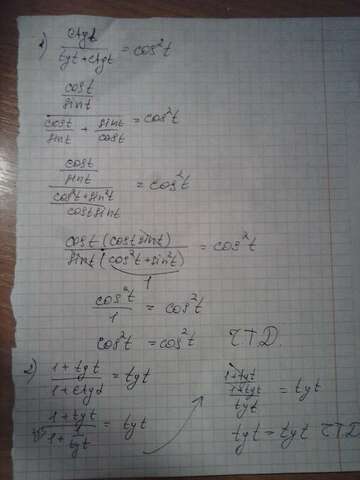 1) ctgt / (tgt + ctgt) = cos²t
(cost / sint) / (cost / sint + sint / cost) = cos²t
(cost / sint) / ((cos²t + sin²t) / (cost sint)) = cos²t
cost (cost sint) / (sint (cos²t + sin²t)) = cos²t
1
cos²t / 1 = cos²t
cos²t = cos²t Ч.Т.Д.
2) (1 + tgt) / (1 + ctgt) = tgt
(1 + tgt) / (1 + 1 / tgt) = tgt
(1 + tgt) / ((1 + tgt) / tgt) = tgt
tgt = tgt Ч.Т.Д